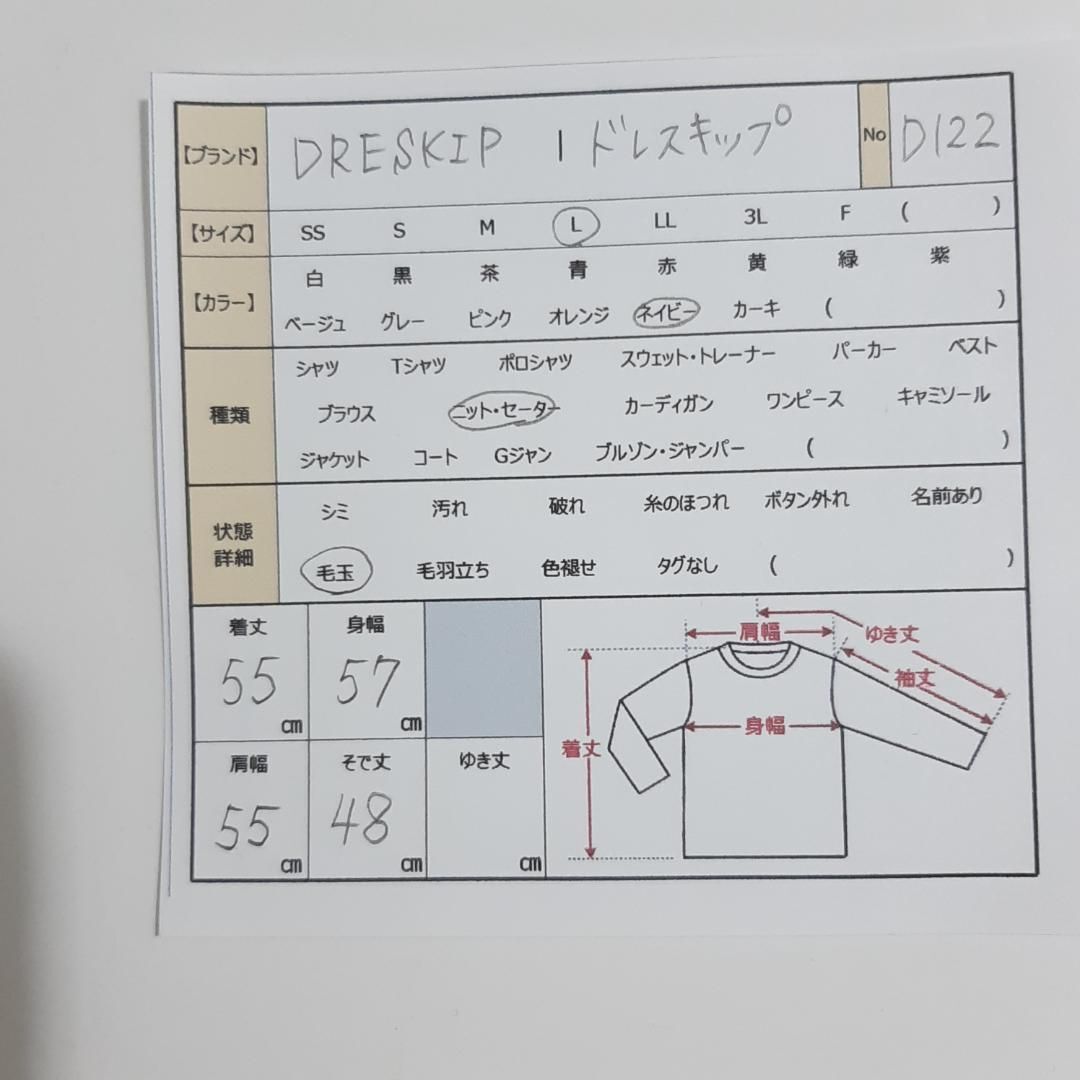 【ブランド】 DRESKIP | ドレスキップ No D122
【サイズ】 SS S M L LL 3L F ( )
白 黒 茶 青 赤 黄 緑 紫
【カラー】
ベージュ グレー ピンク オレンジ ネイビー カーキ ( )
シャツ Tシャツ ポロシャツ スウェット・トレーナー パーカー ベスト
種類 ブラウス ニット・セーター カーディガン ワンピース キャミソール
ジャケット コート Gジャン ブルゾン・ジャンパー ( )
シミ 汚れ 破れ 糸のほつれ ボタン外れ 名前あり
状態
詳細
毛玉 毛羽立ち 色褪せ タグなし ( )
着丈 身幅
55 cm 57 cm
肩幅 そで丈 ゆき丈
55 cm 48 cm cm
肩幅 ゆき丈
袖丈
身幅
着丈